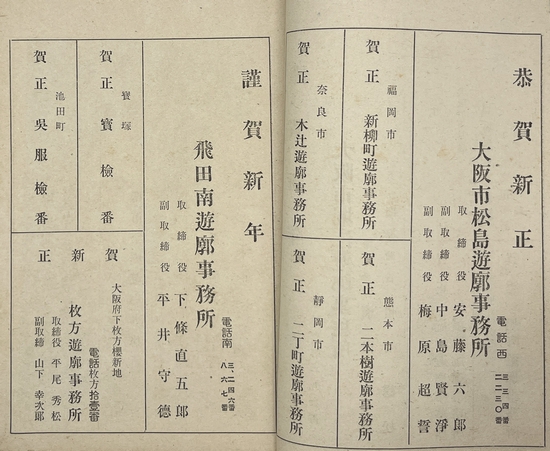 恭賀新正
大阪市松島遊廓事務所
電話西 三三四番
二二三〇番
取締役 安藤六郎
副取締役 中島賢淨
副取締役 梅原超誓
福岡市
賀正 新柳町遊廓事務所
熊本市
賀正 二本樹遊廓事務所
奈良市
賀正 木辻遊廓事務所
靜岡市
賀正 二丁町遊廓事務所
謹賀新年
飛田南遊廓事務所
電話南 三二四六番
八六七番
取締役 下條直五郎
副取締役 平井守德
寶塚
賀正 寶檢番
池田町
賀正 吳服檢番
賀新正
大阪府下枚方櫻新地
電話枚方拾壹番
枚方遊廓事務所
取締役 平尾秀松
副取締 山下幸次郎